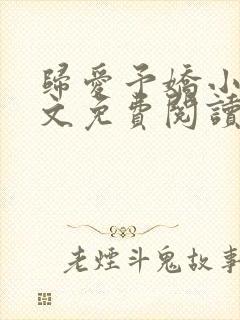 歸愛予嬌小
文免費閱讀
老煙斗鬼故事